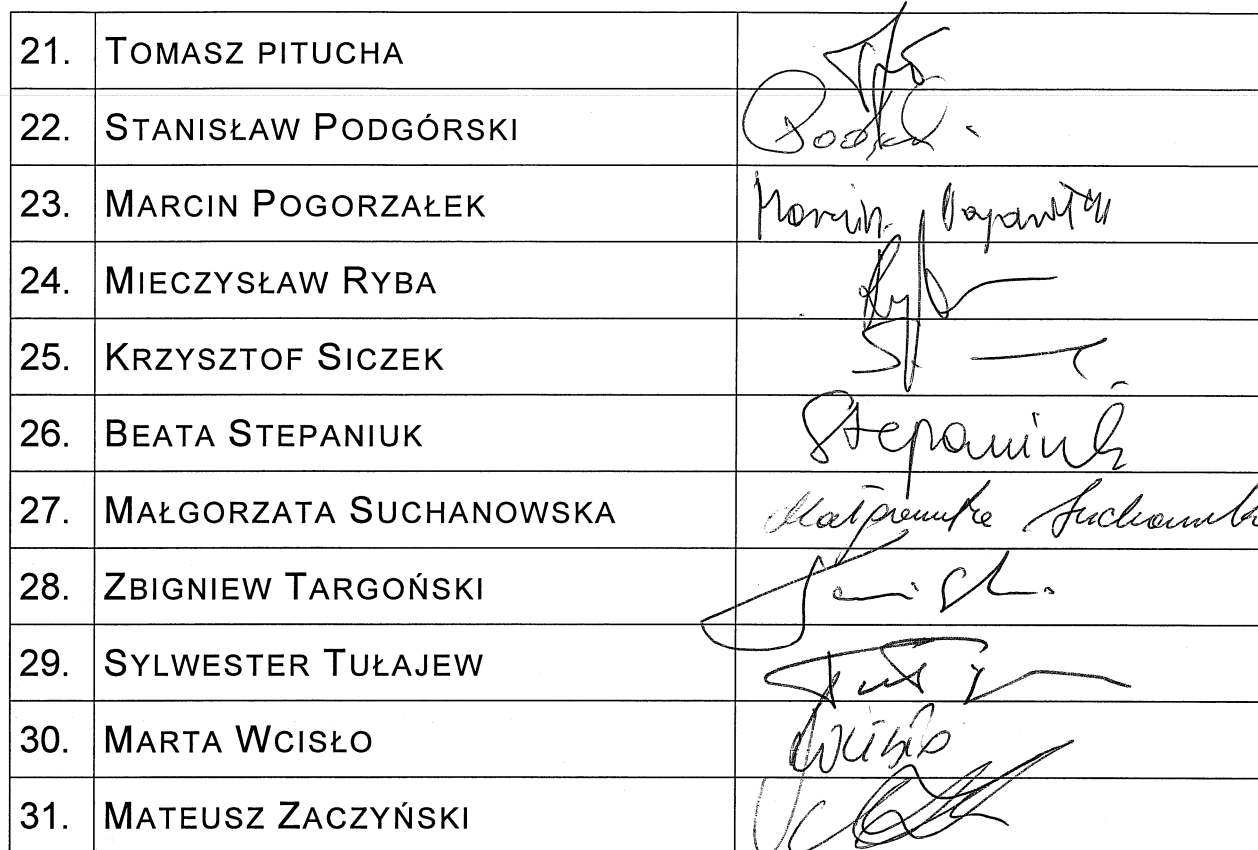 21. TOMASZ PITUCHA
22. STANISŁAW PODGÓRSKI
23. MARCIN POGORZAŁEK Marcin
24. MIECZYSŁAW RYBA Ryba
25. KRZYSZTOF SICZEK
26. BEATA STEPANIUK Stepaniuk
27. MAŁGORZATA SUCHANOWSKA Małgorzata Suchanowska
28. ZBIGNIEW TARGOŃSKI
29. SYLWESTER TUŁAJEW
30. MARTA WCISŁO Wcisło
31. MATEUSZ ZACZYŃSKI